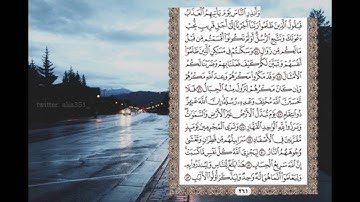 وَأَنذِرِ النَّاسَ يَوْمَ يَأْتِيهِمُ الْعَذَابُ
فَيَقُولُ الَّذِينَ ظَلَمُوا رَبَّنَا أَخِّرْنَا إِلَىٰ أَجَلٍ قَرِيبٍ نُّجِبْ
دَعْوَتَكَ وَنَتَّبِعِ الرُّسُلَ أَوَلَمْ تَكُونُوا أَقْسَمْتُم مِّن قَبْلُ
مَا لَكُم مِّن زَوَالٍ ٤٤ وَسَكَنتُمْ فِي مَسَاكِنِ الَّذِينَ ظَلَمُوا
أَنفُسَهُمْ وَتَبَيَّنَ لَكُمْ كَيْفَ فَعَلْنَا بِهِمْ وَضَرَبْنَا لَكُمُ
الْأَمْثَالَ ٤٥ وَقَدْ مَكَرُوا مَكْرَهُمْ وَعِندَ اللَّهِ مَكْرُهُمْ
وَإِن كَانَ مَكْرُهُمْ لِتَزُولَ مِنْهُ الْجِبَالُ ٤٦ فَلَا
تَحْسَبَنَّ اللَّهَ مُخْلِفَ وَعْدِهِ رُسُلَهُ إِنَّ اللَّهَ عَزِيزٌ
ذُو انتِقَامٍ ٤٧ يَوْمَ تُبَدَّلُ الْأَرْضُ غَيْرَ الْأَرْضِ وَالسَّمَاوَاتُ
وَبَرَزُوا لِلَّهِ الْوَاحِدِ الْقَهَّارِ ٤٨ وَتَرَى الْمُجْرِمِينَ يَوْمَئِذٍ
مُّقَرَّنِينَ فِي الْأَصْفَادِ ٤٩ سَرَابِيلُهُم مِّن قَطِرَانٍ وَتَغْشَىٰ
وُجُوهَهُمُ النَّارُ ٥٠ لِيَجْزِيَ اللَّهُ كُلَّ نَفْسٍ مَّا كَسَبَتْ
إِنَّ اللَّهَ سَرِيعُ الْحِسَابِ ٥١ هَٰذَا بَلَاغٌ لِّلنَّاسِ وَلِيُنذَرُوا بِهِ
وَلِيَعْلَمُوا أَنَّمَا هُوَ إِلَٰهٌ وَاحِدٌ وَلِيَذَّكَّرَ أُولُو الْأَلْبَابِ ٥٢
٢٦١
twitter: alia351_